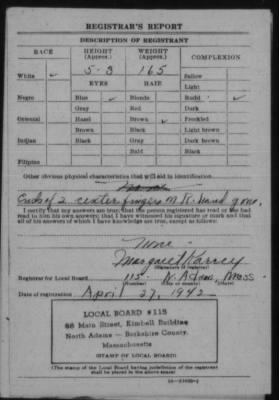 REGISTRAR'S REPORT
DESCRIPTION OF REGISTRANT
RACE HEIGHT (Approx.) WEIGHT (Approx.) COMPLEXION
White ✓ 5-8 165 Sallow
EYES HAIR Light
Negro Blue ✓ Blonde Ruddy ✓
Gray Red Dark
Oriental Hazel Brown ✓ Freckled
Brown Black Light brown
Indian Black Gray Dark brown
Bald Black
Filipino
Other obvious physical characteristics that will aid in identification
Ends of 2 center fingers on R. hand gone.
I certify that my answers are true; that the person registered has read or has had
read to him his own answers; that I have witnessed his signature or mark and that
all of his answers of which I have knowledge are true, except as follows:
None
Margaret
(Signature of registrar)
Registrar for Local Board 115 N. Adams, Mass
(Number) (City or county) (State)
Date of registration April 27, 1942
LOCAL BOARD #115
85 Main Street, Kimbell Building
North Adams - Berkshire County,
Massachusetts
(STAMP OF LOCAL BOARD)
(The stamp of the Local Board having jurisdiction of the registrant
shall be placed in the above space)